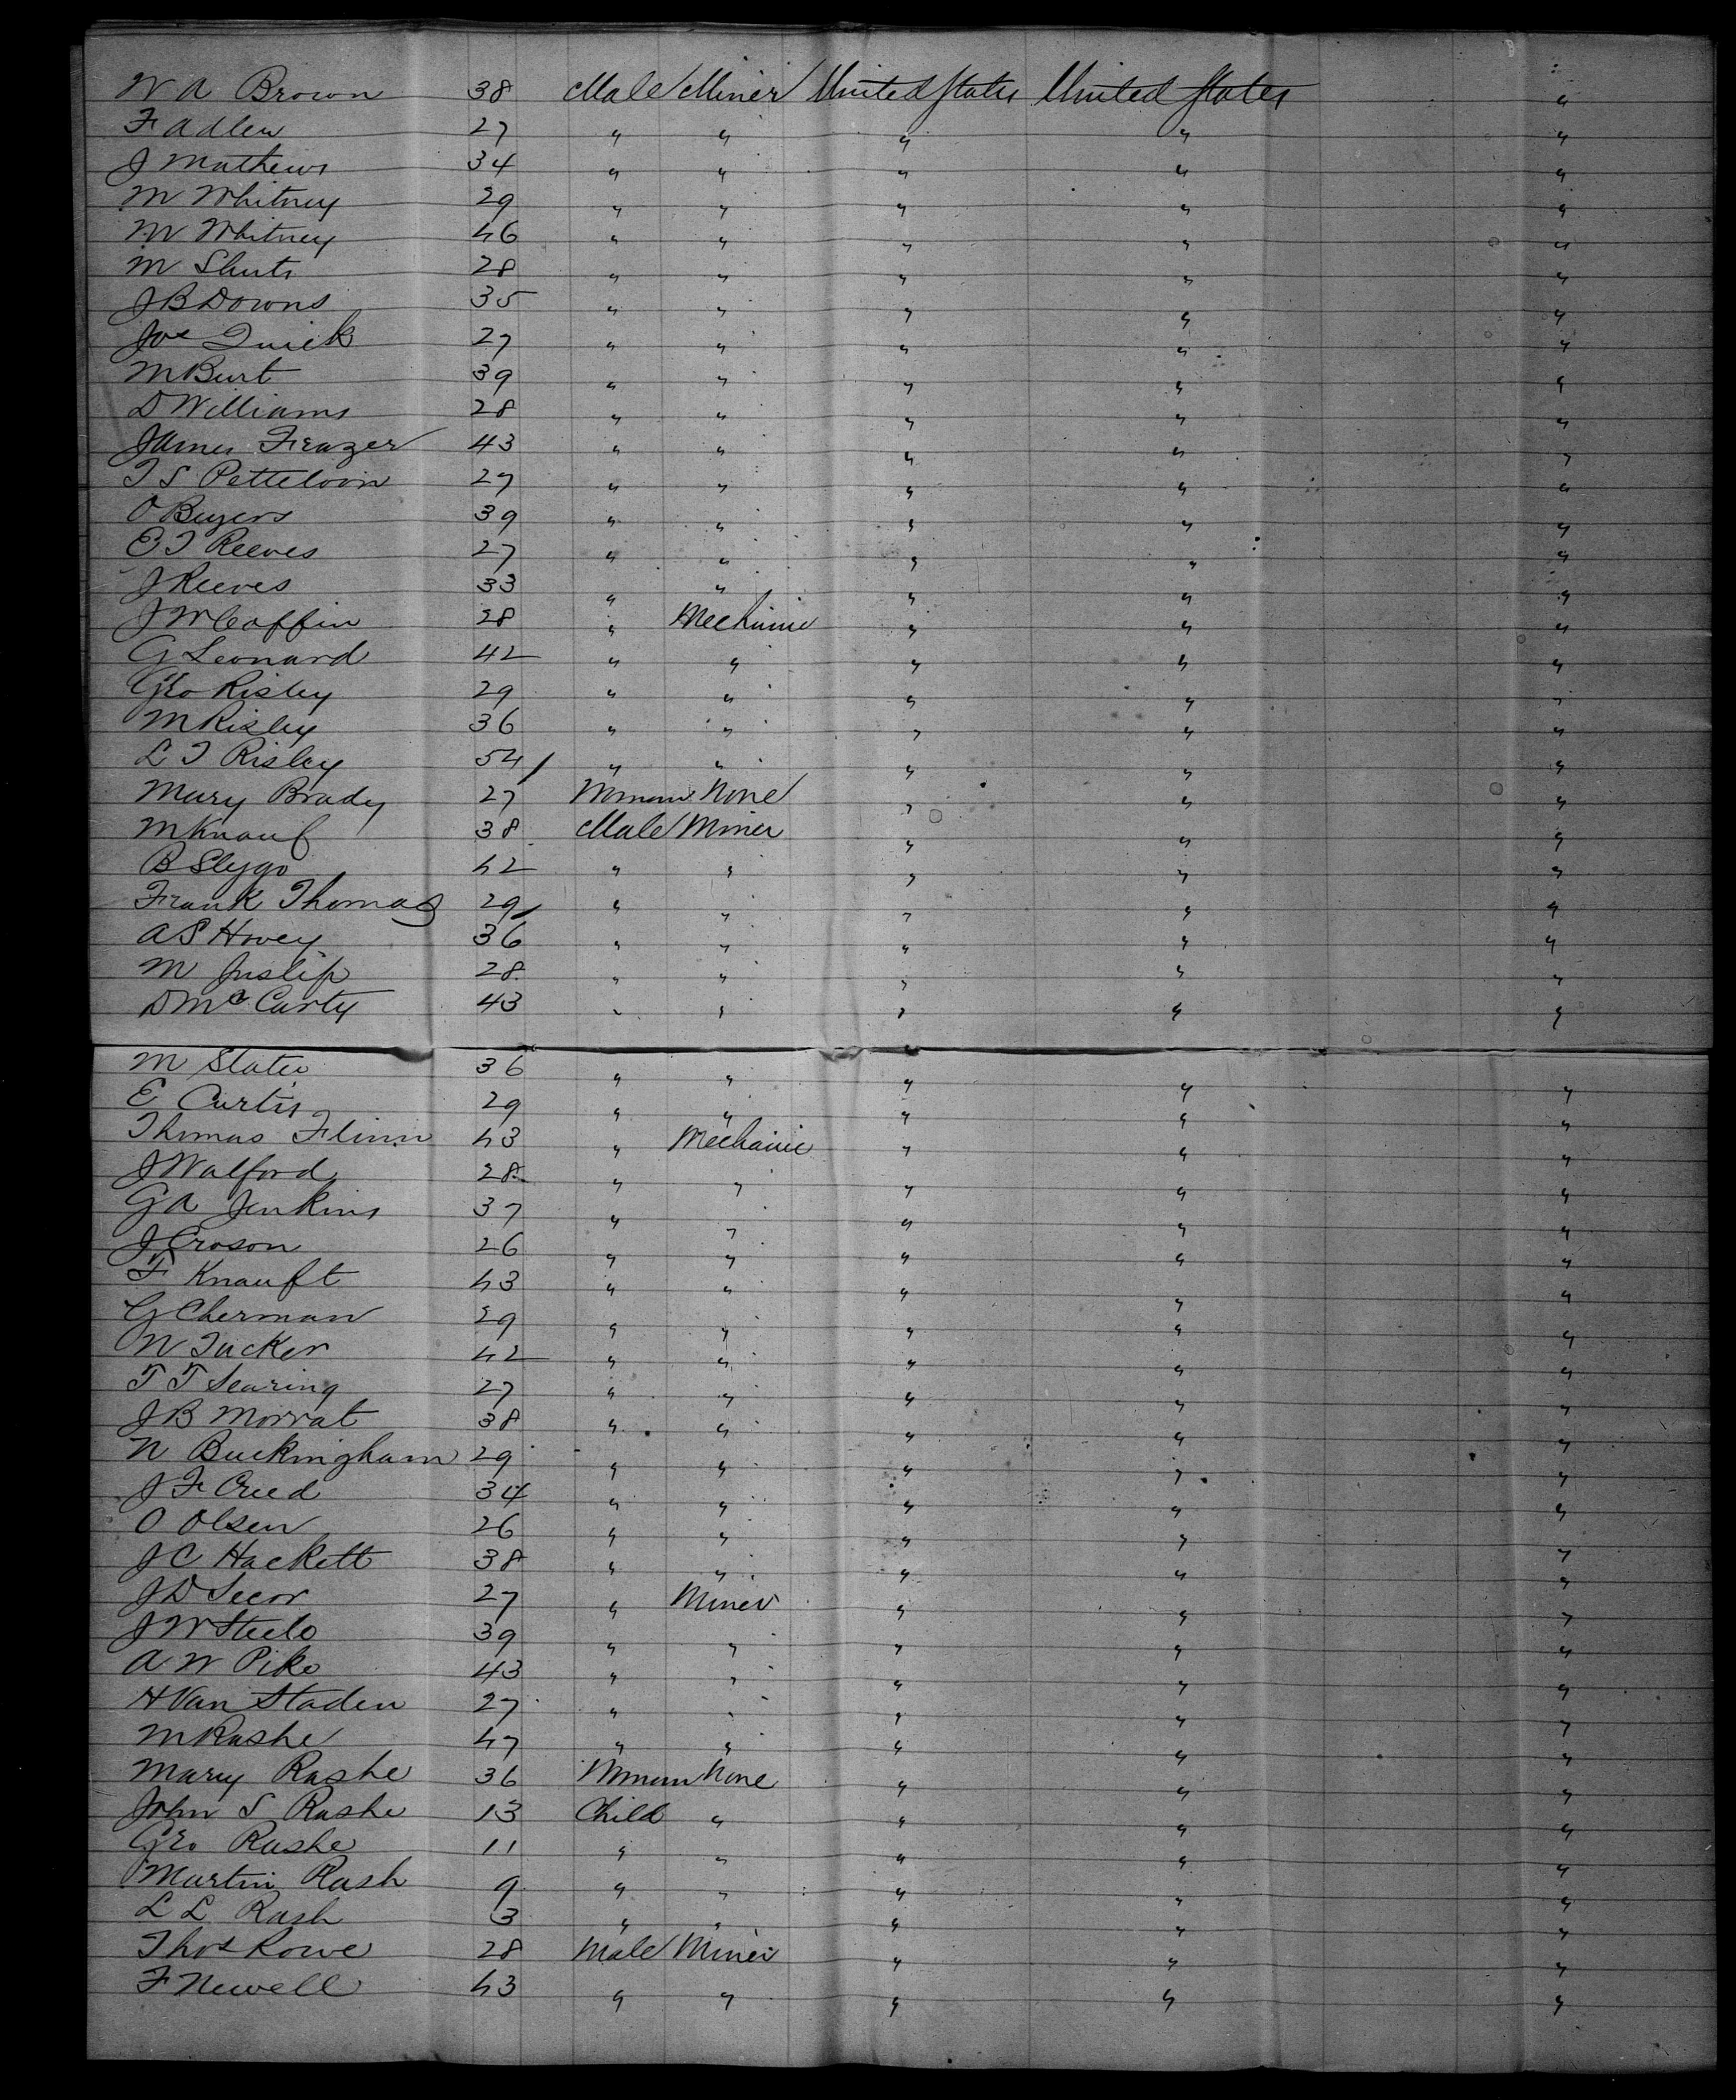 W A Brown 38 Male Miner United States United States "
F Adlen 27 " " " " "
J Mathews 34 " " " " "
M Whitney 29 " " " " "
M Whitney 46 " " " " "
M Shuts 28 " " " " "
J B Downs 35 " " " " "
Joe Quick 27 " " " " "
M Burt 39 " " " " "
D Williams 28 " " " " "
James Frazer 43 " " " " "
T S Petteloon 27 " " " " "
O Beyers 39 " " " " "
E T Reeves 27 " " " " "
J Reeves 33 " " " " "
J W Coffin 28 " Mechanic " " "
G Leonard 42 " " " " "
Geo Risley 29 " " " " "
M Risley 36 " " " " "
L T Risley 54 " " " " "
Mary Brady 27 Woman None " " "
M Knauf 38 Male Miner " " "
B Slygo 42 " " " " "
Frank Thomas 29 " " " " "
A S Hovey 36 " " " " "
M Juslip 28 " " " " "
D McCarty 43 " " " " "
M Slater 36 " " " " "
E Curtis 29 " " " " "
Thomas Flinn 43 " Mechanic " " "
J Walford 28 " " " " "
G A Jenkins 37 " " " " "
J Croson 26 " " " " "
F Knauft 43 " " " " "
G Cherman 29 " " " " "
N Tucker 42 " " " " "
T T Searing 27 " " " " "
J B Morrat 38 " " " " "
N Buckingham 29 " " " " "
J F Creed 34 " " " " "
O Olsen 26 " " " " "
J C Hackett 38 " " " " "
J D Secor 27 " Miner " " "
J W Steele 39 " " " " "
A W Pike 43 " " " " "
H Van Staden 27 " " " " "
M Rashe 47 " " " " "
Mary Rashe 36 Woman None " " "
John S Rashe 13 Child " " " "
Geo Rashe 11 " " " " "
Martin Rash 9 " " " " "
L L Rash 3 " " " " "
Thos Rowe 28 Male Miner " " "
F Newell 43 " " " " "